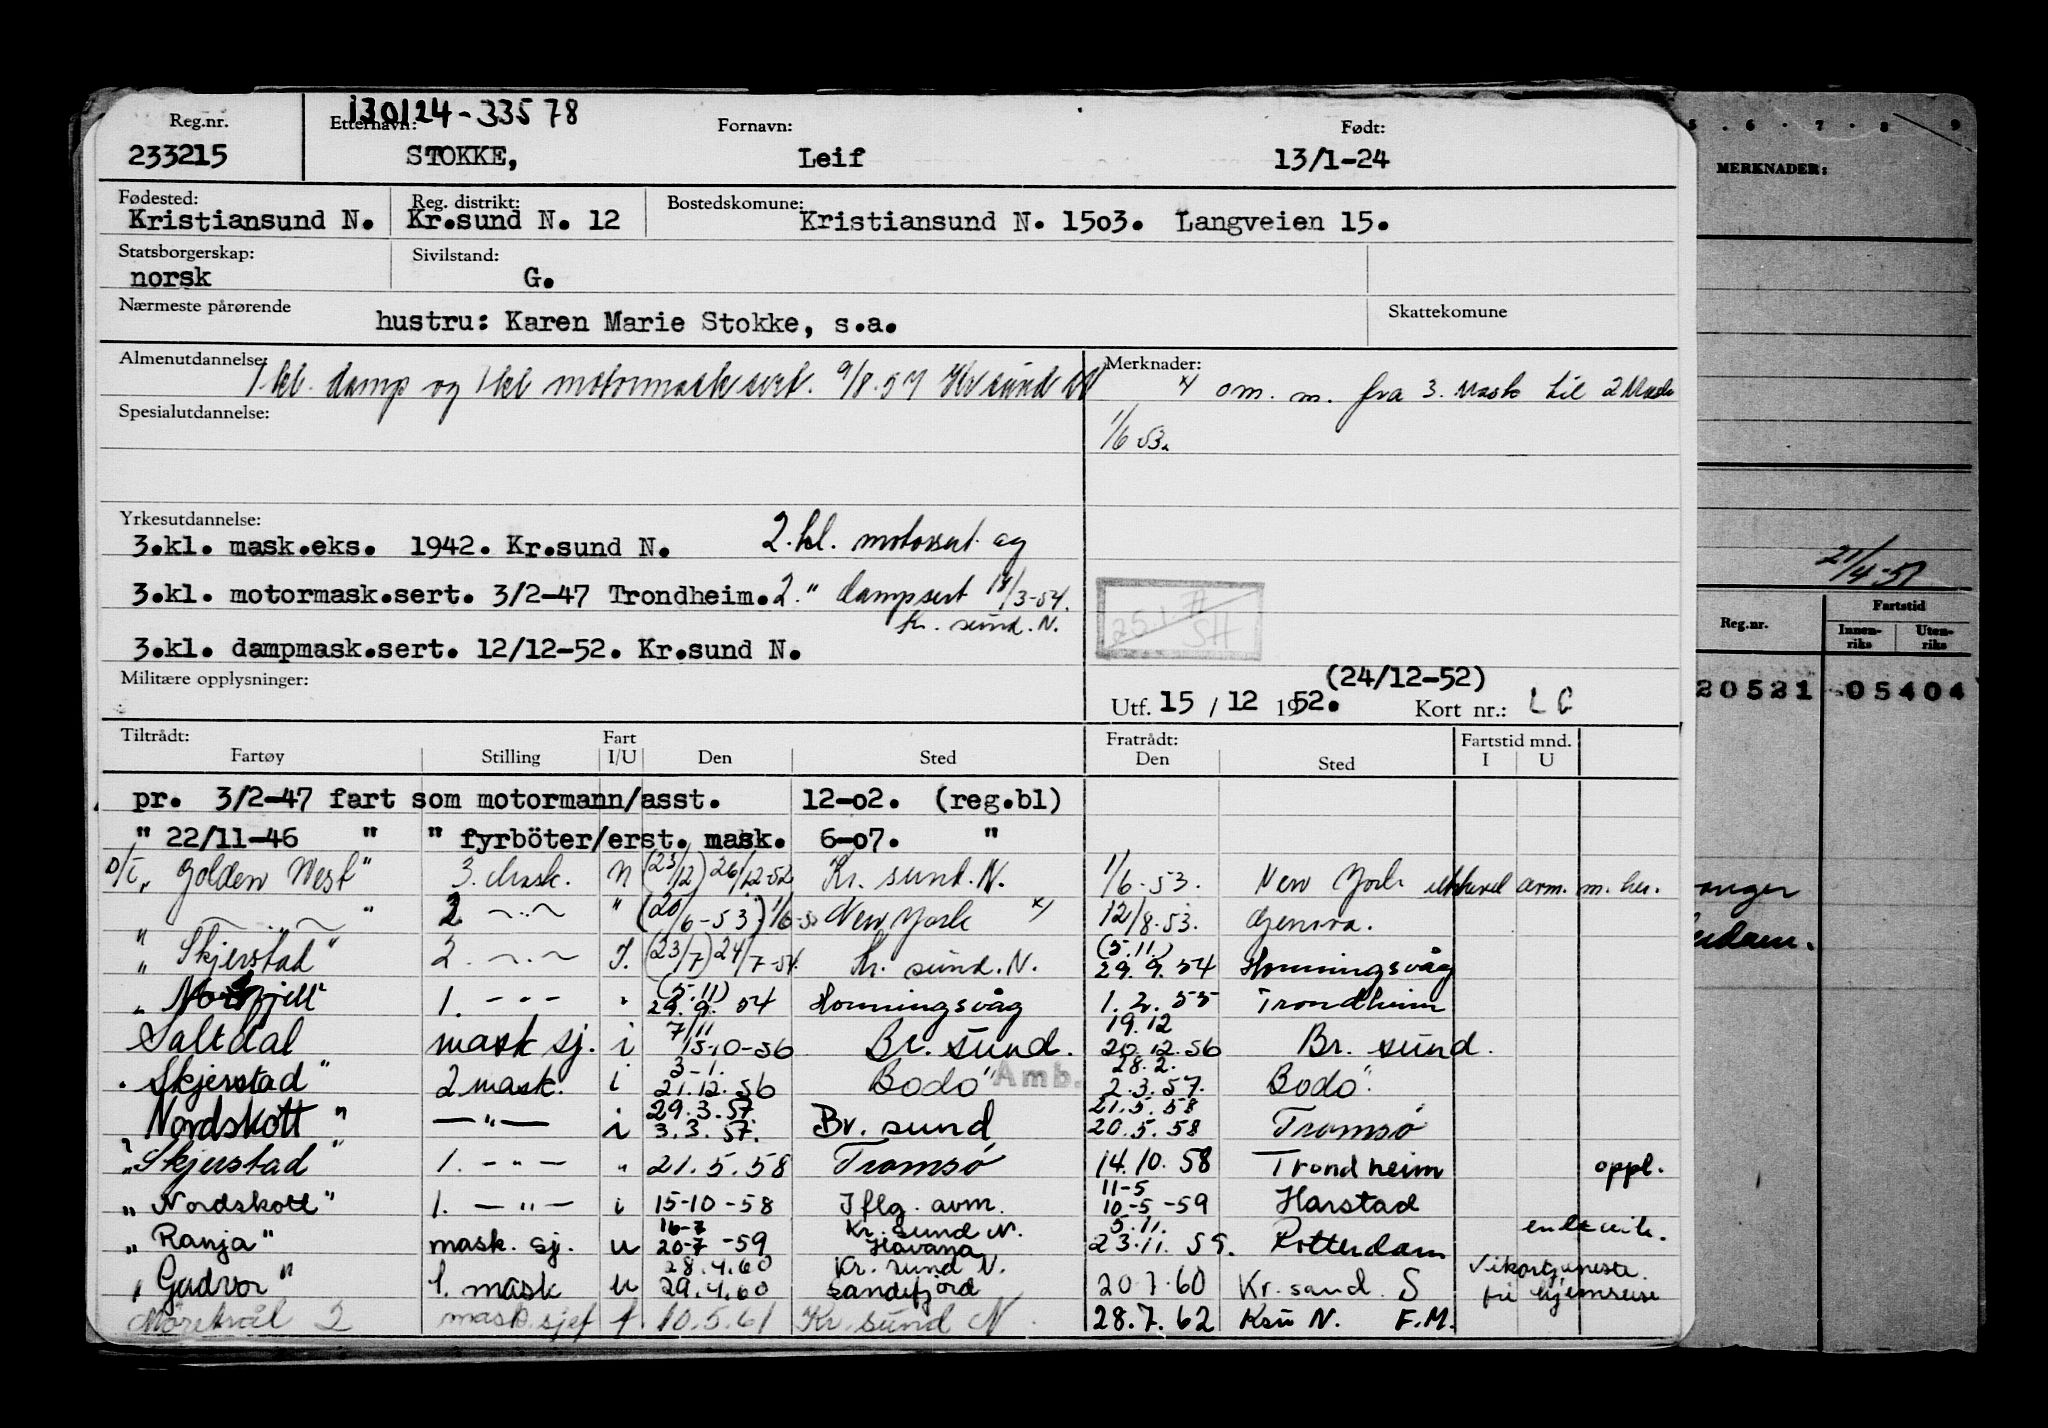 130124-33578
Reg.nr. Etternavn: Fornavn: Født:
233215 STOKKE, Leif 13/1-24
Fødested: Reg. distrikt: Bostedskomune:
Kristiansund N. Kr.sund N. 12 Kristiansund N. 1503. Langveien 15.
Statsborgerskap: Sivilstand:
norsk G.
Nærmeste pårørende Skattekomune
hustru: Karen Marie Stokke, s.a.
Almenutdannelse: Merknader:
1 kl. damp og 1 kl motormask sert. 9/8.57 Kr sund N
x) om. m. fra 3. mask til 2 Mask
Spesialutdannelse:
1/6 53.
Yrkesutdannelse:
3.kl. mask.eks. 1942. Kr.sund N. 2. kl. motorsert og
3.kl. motormask.sert. 3/2-47 Trondheim. 2. " dampsert 17/3-54.
Kr. sund. N.
3.kl. dampmask.sert. 12/12-52. Kr.sund N.
Militære opplysninger:
(24/12-52)
Utf. 15 / 12 1952. Kort nr.:
Tiltrådt: Fart Fratrådt: Fartstid mnd.
Fartøy Stilling I/U Den Sted Den Sted I U
pr. 3/2-47 fart som motormann/asst. 12-02. (reg.bl)
" 22/11-46 " " fyrböter/erst. mask. 6-07. "
D/T " Golden West" 3. Mask. N (23/12) 26/12-52 Kr. sund. N. 1/6-53. New York arm. m. her.
" 2. " (20/6-53) 1/6-53 New York x) 12/8.53. Genova.
" Skjerstad" 2. I. (23/7) 24/7-54. Kr. sund. N. (5.11.) 29.9.54 Honningsvåg
" 1. - " - " (5.11) 29.9.54 Honningsvåg 1.2.55 Trondheim
Saltdal mask sj. i 7/11 15-10-56 Br. sund. 19.12 20.12.56 Br. sund.
" Skjerstad" 2 mask. i 3-1. 21.12.56 Bodö Amb. 28.2. 2.3.57. Bodö.
Nordskott " — " — i 29.3.57. 3.3.57. Br. sund 21.5.58 20.5.58 Tromsö
" Skjerstad " 1. - " - " 21.5.58 Tromsö 14.10.58 Trondheim oppl.
" Nordskott" 1. - " - i 15-10-58 Iflg. avm. 11-5 10-5-59 Harstad
" Ranja" mask. sj. u 16-7 20-7-59 Kr. Sund N. Havana 5.11. 23.11.59. Rotterdam
" Gudvor" 1. mask u 28.4.60 29.4.60 Kr. sund N. Sandefjord 20.7.60 Kr. sand. S Vikartjeneste. hjemreise
Möretrål 2 mask.sjef f 10.5.61 Kr. sund N. 28.7.62 Ksu N. F.M.
5 . 6 . 7 . 8 9
MERKNADER:
21/4-51
Fartstid
Reg.nr. Innen-riks Uten-riks
20521 05404